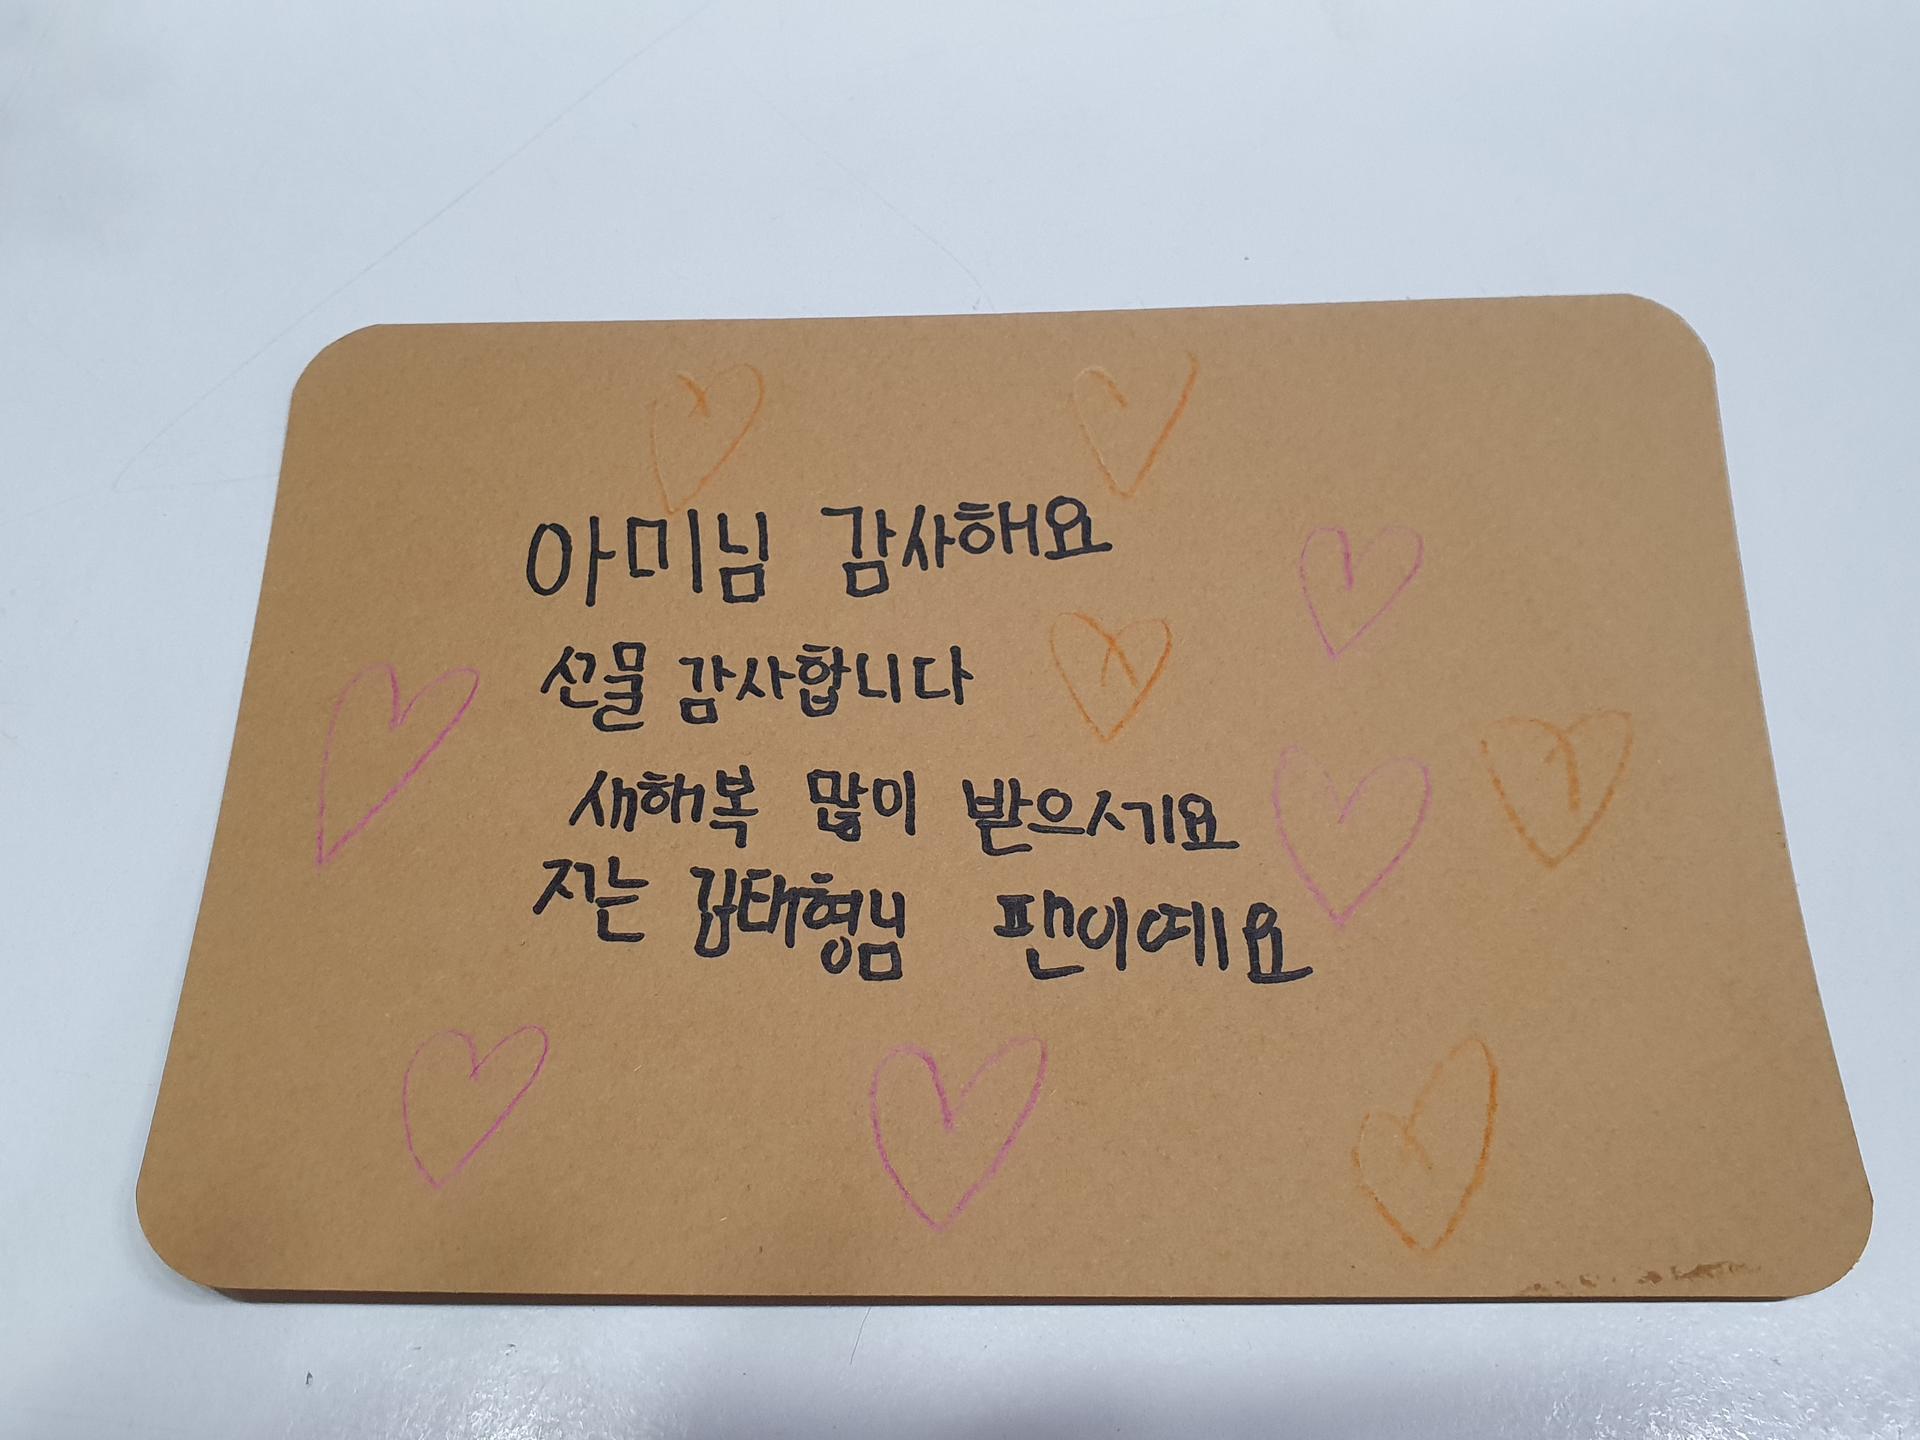 아미님 감사해요
선물 감사합니다
새해복 많이 받으세요
저는 김태형님 팬이예요